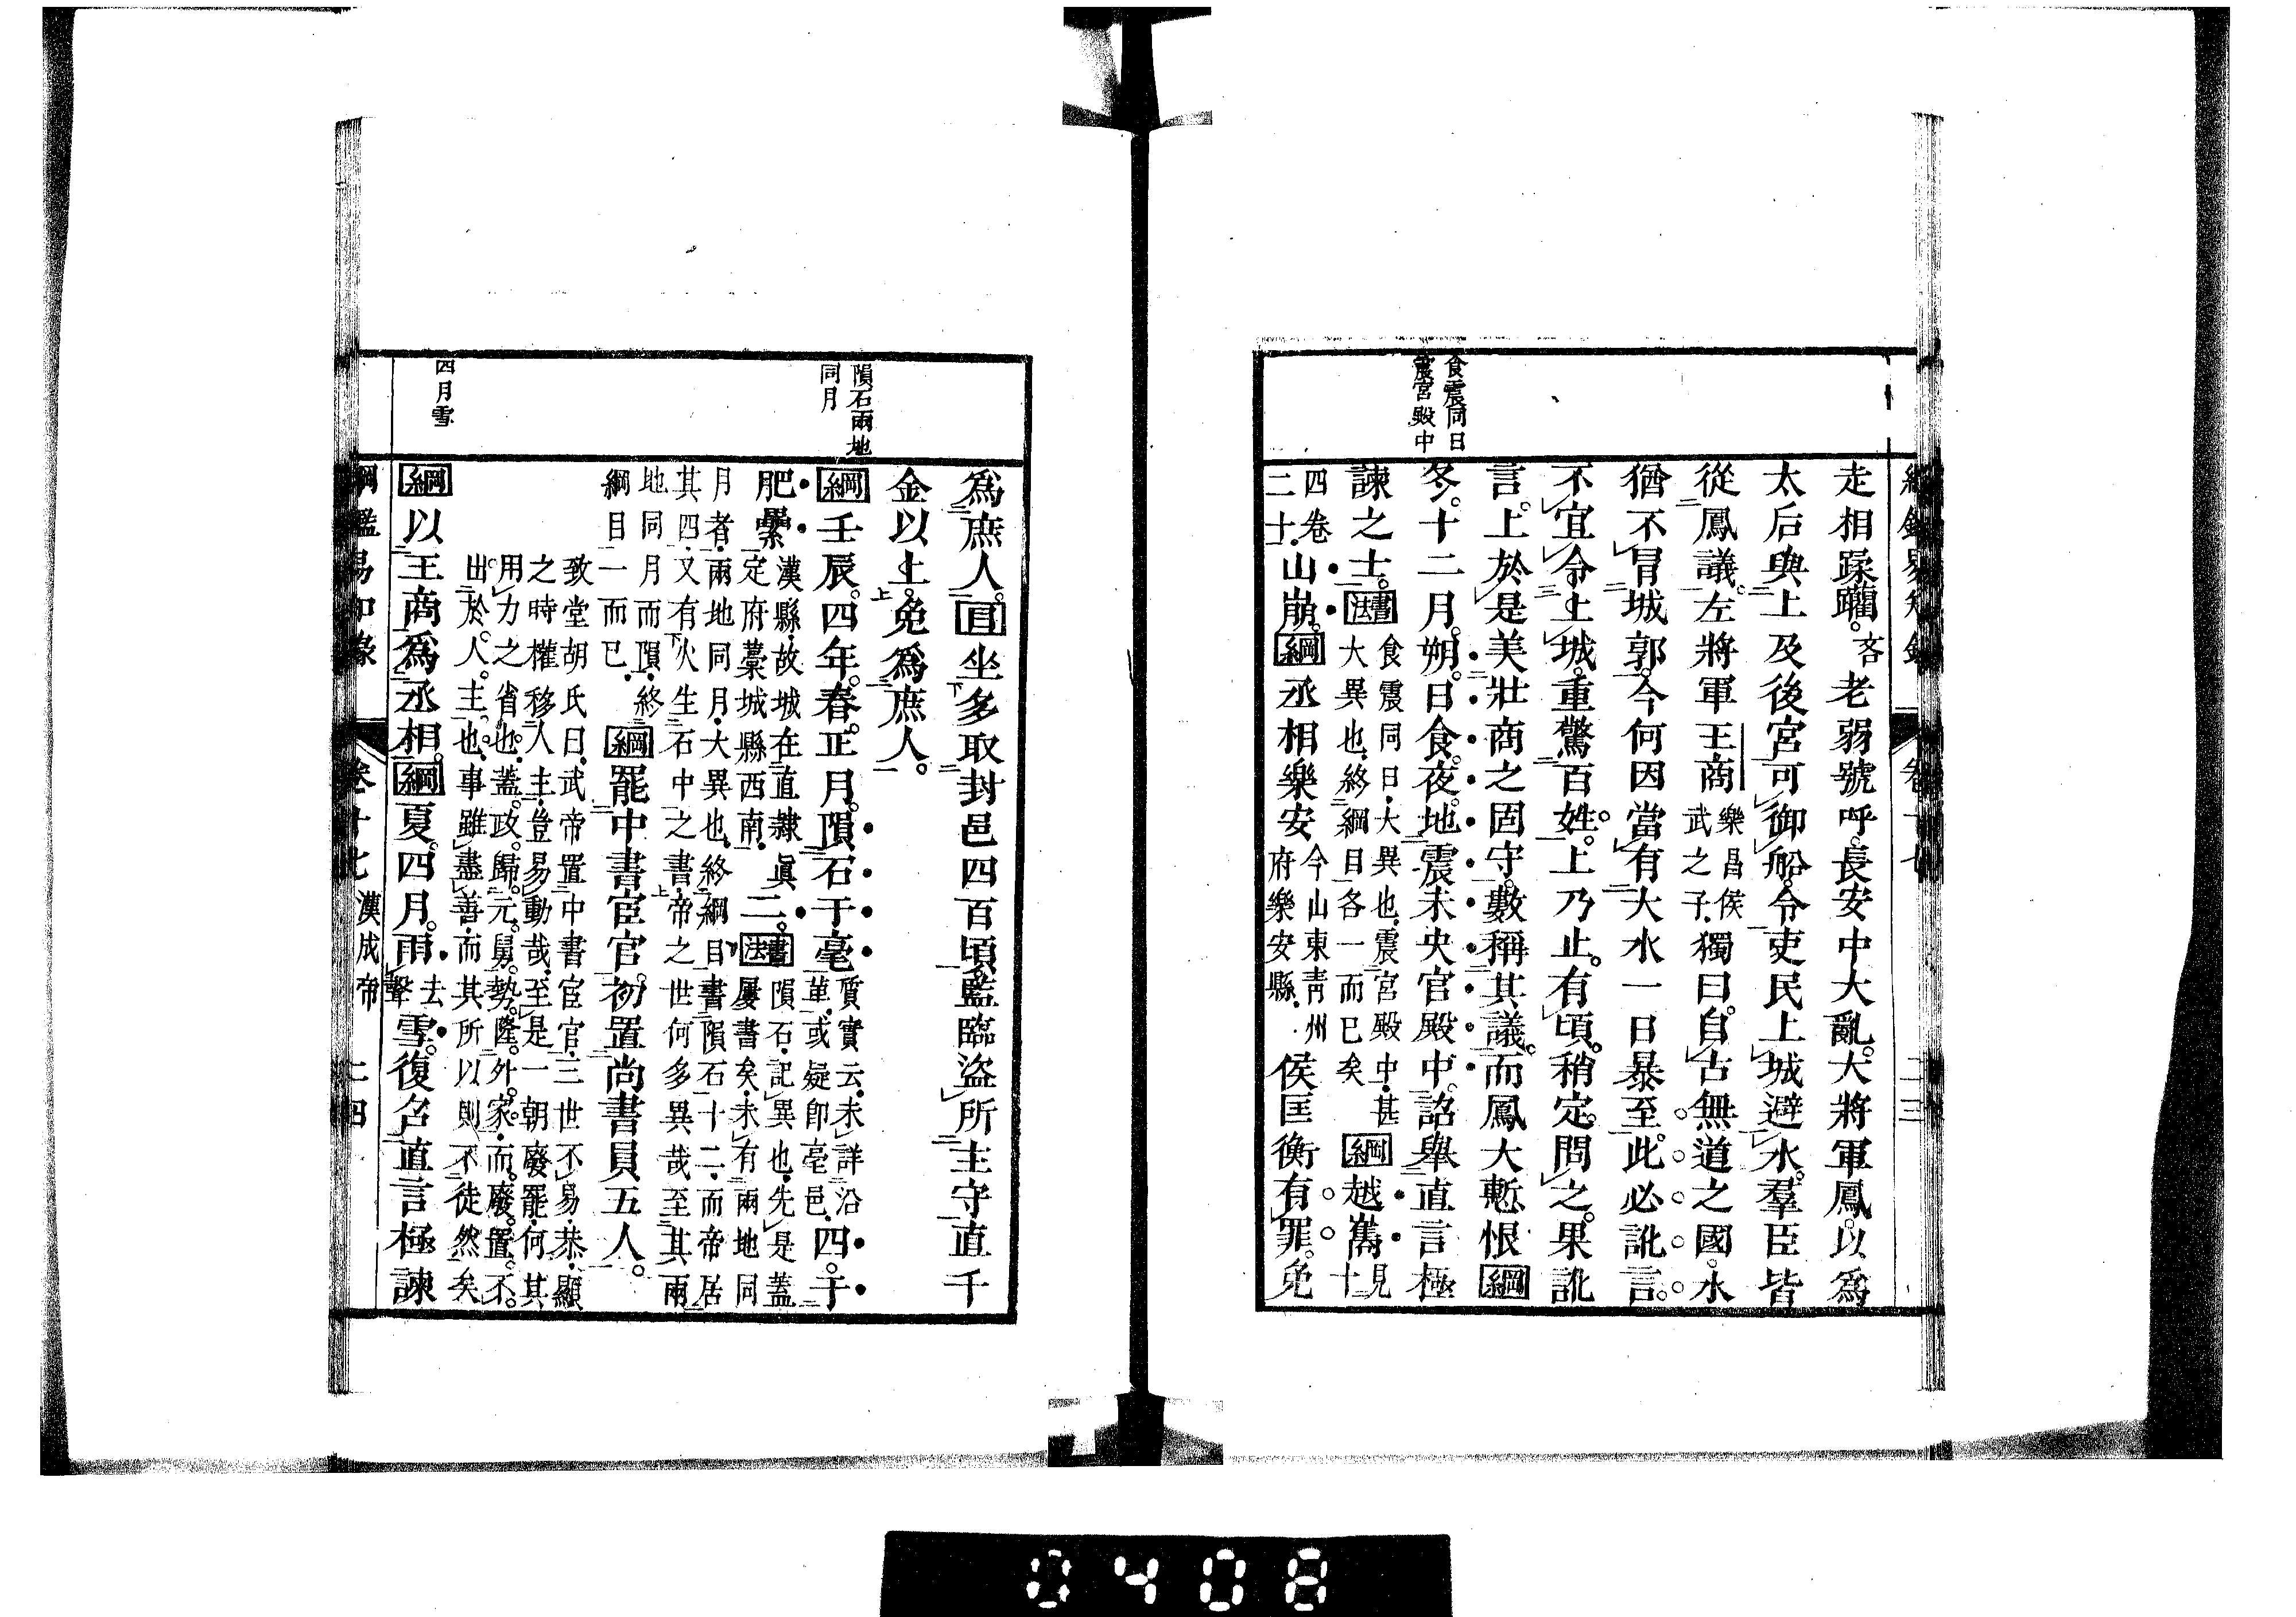 食震同日
震宮殿中
走相蹂躪。吝老弱號呼。長安中大亂。大將軍鳳。以爲
太后與上及後宮可御船。令吏民上城避水。羣臣皆
從鳳議。左將軍王商樂昌侯武之子。獨曰。自古無道之國。水
猶不冒城郭。今何因當有大水一日暴至。此必訛言。
不宜令上城。重驚百姓。上乃止。有頃。稍定。問之。果訛
言。上於是美壯商之固守。數稱其議。而鳳大慙恨綱
冬。十二月。朔。日食。夜。地震未央宮殿中。詔舉直言極
諫之士。書法食震同日。大異也。震宮殿中。甚大異也。終綱目各一而已矣綱越嶲見十
四卷二十。山崩。綱丞相樂安今山東靑州府樂安縣。侯匡衡有罪。免
隕石兩地
同月
爲庶人。目坐多取封邑四百頃。監臨盜所主守直千
金以上。免爲庶人。
綱壬辰。四年。春。正月。隕石于亳質實云。未詳沿革。或疑卽亳邑。四。于
肥纍漢縣。故城在直隸眞定府藁城縣西南。二。書法隕石。記異也。先是蓋屢書矣。未有兩地同
月者。兩地同月。大異也。終綱目書隕石十二。而帝居
其四。又有火生石中之書。帝之世何多異哉至其兩
地同月而隕。終
綱目一而已。綱罷中書宦官。初置尚書員五人。
致堂胡氏曰。武帝置中書宦官。三世不易。恭。顯
之時權移人主。豈易動哉。至是一朝廢罷。何其
用力之省也。蓋政歸元舅。勢隆外家。而廢置不
出於人主也。事雖盡善。而其所以則不徒然矣
四月雪
綱以王商爲丞相。綱夏。四月。雨去聲雪。復召直言極諫
綱鑑易知錄 卷十七 漢成帝 二四
0408